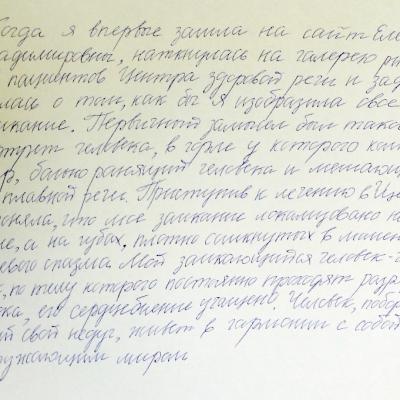 Когда я впервые зашла на сайт Еле
адимировны, наткнулась на галерею ри
пациентов Центра здоровой речи и заду
лась о том, как бы я изобразила свое
икание. Первичный замысел был таков
ртрет человека, в горле у которого ком
р, больно ранящий человека и мешающи
плавной речи. Приступив к лечению в Це
оняла, что мое заикание локализовано н
ле, а на губах, плотно сомкнутых в момен
евого спазма. Мой заикающийся человек-
к, по телу которого постоянно проходят разря
ока, его сердцебиение учащено. Человек, побор
й свой недуг, живет в гармонии с собой
ружающим миром